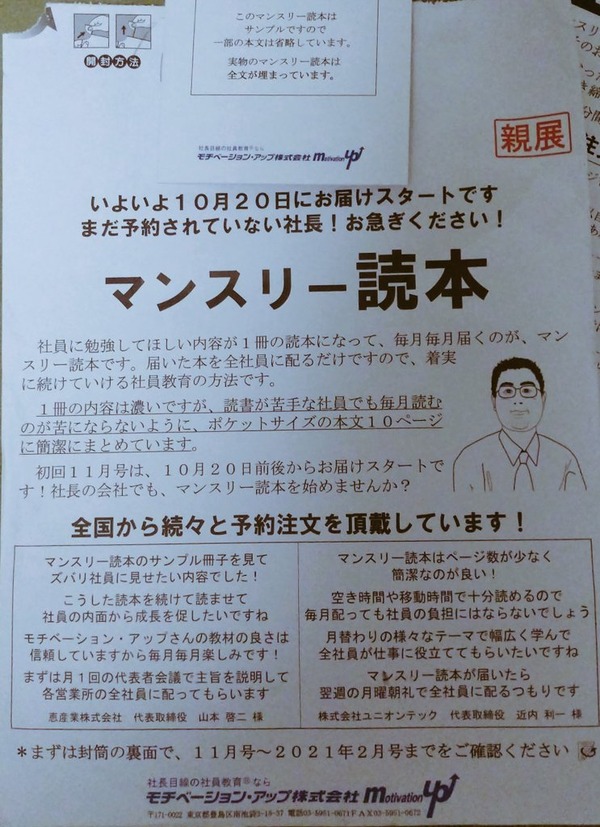 開封方法
このマンスリー読本は
サンプルですので
一部の本文は省略しています。
実物のマンスリー読本は
全文が埋まっています。
社長目線の社員教育®なら
モチベーション・アップ株式会社 motivation up
親展
いよいよ10月20日にお届けスタートです
まだ予約されていない社長!お急ぎください!
マンスリー読本
社員に勉強してほしい内容が1冊の読本になって、毎月毎月届くのが、マン
スリー読本です。届いた本を全社員に配るだけですので、着実
に続けていける社員教育の方法です。
1冊の内容は濃いですが、読書が苦手な社員でも毎月読む
のが苦にならないように、ポケットサイズの本文10ページ
に簡潔にまとめています。
初回11月号は、10月20日前後からお届けスタートで
す!社長の会社でも、マンスリー読本を始めませんか?
全国から続々と予約注文を頂戴しています!
マンスリー読本のサンプル冊子を見て
ズバリ社員に見せたい内容でした!
こうした読本を続けて読ませて
社員の内面から成長を促したいですね
モチベーション・アップさんの教材の良さは
信頼していますから毎月毎月楽しみです!
まずは月1回の代表者会議で主旨を説明して
各営業所の全社員に配ってもらいます
恵産業株式会社 代表取締役 山本 啓二 様
マンスリー読本はページ数が少なく
簡潔なのが良い!
空き時間や移動時間で十分読めるので
毎月配っても社員の負担にはならないでしょう
月替わりの様々なテーマで幅広く学んで
全社員が仕事に役立ててもらいたいですね
マンスリー読本が届いたら
翌週の月曜朝礼で全社員に配るつもりです
株式会社ユニオンテック 代表取締役 近内 利一 様
*まずは封筒の裏面で、11月号~2021年2月号までをご確認ください
社長目線の社員教育®なら
モチベーション・アップ株式会社 motivation up
〒171-0022 東京都豊島区南池袋2-18-37 電話03-5951-0671 FAX03-5951-0672